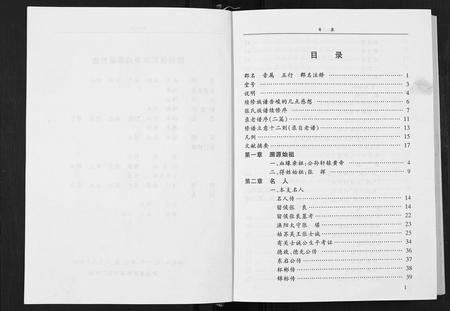 目 录
目 录
郡名 音属 五行 郡名注释 1
堂号 3
说明 4
续修族谱告竣的几点感想 6
张氏族谱续修序 7
录老谱序(二篇) 11
修谱立意十二则(录自老谱) 13
凡例 15
文献摘要 17
第一章 溯源始祖
一、血缘亲祖:公孙轩辕黄帝 4
二、得姓始祖:张挥 9
第二章 名 人
一、本支名人
名人传 14
留侯张 良 14
留侯张良墓考 22
滇阳太守张 23
姑苏吴王张士诚 25
有关士诚公生平考证 34
德政、德光公传 36
东启公传 37
杯彬传 38
锦标传 39
1